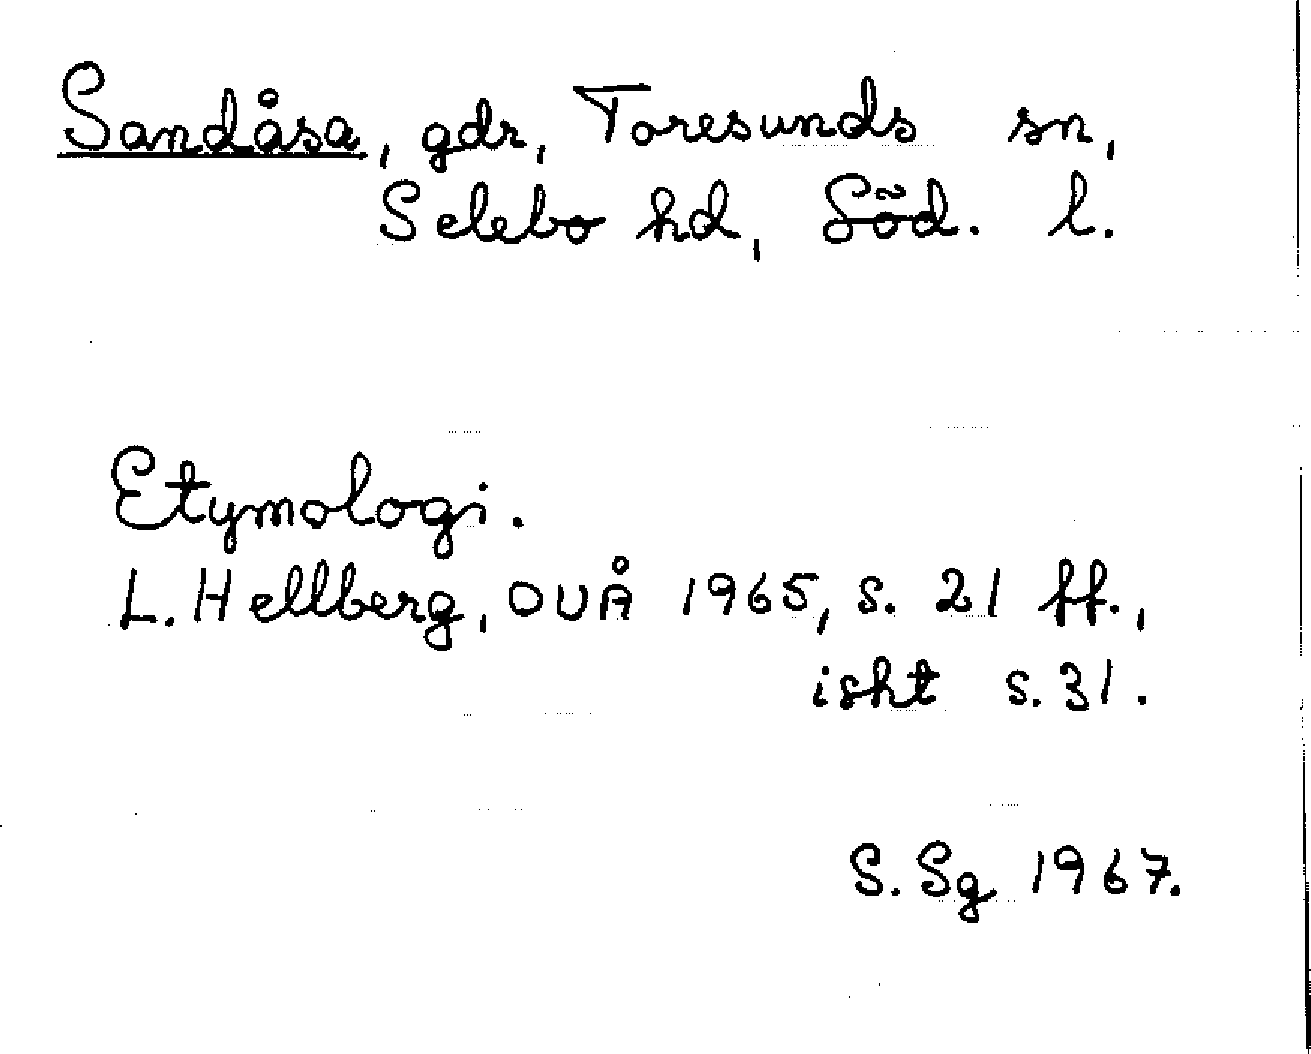 Sandåsa, gdr, Toresunds sn,
Selebo hd, Söd. l.
Etymologi.
L. Hellberg, OUÅ 1965, s. 21 ff.,
isht s. 31.
S. Sg 1967.